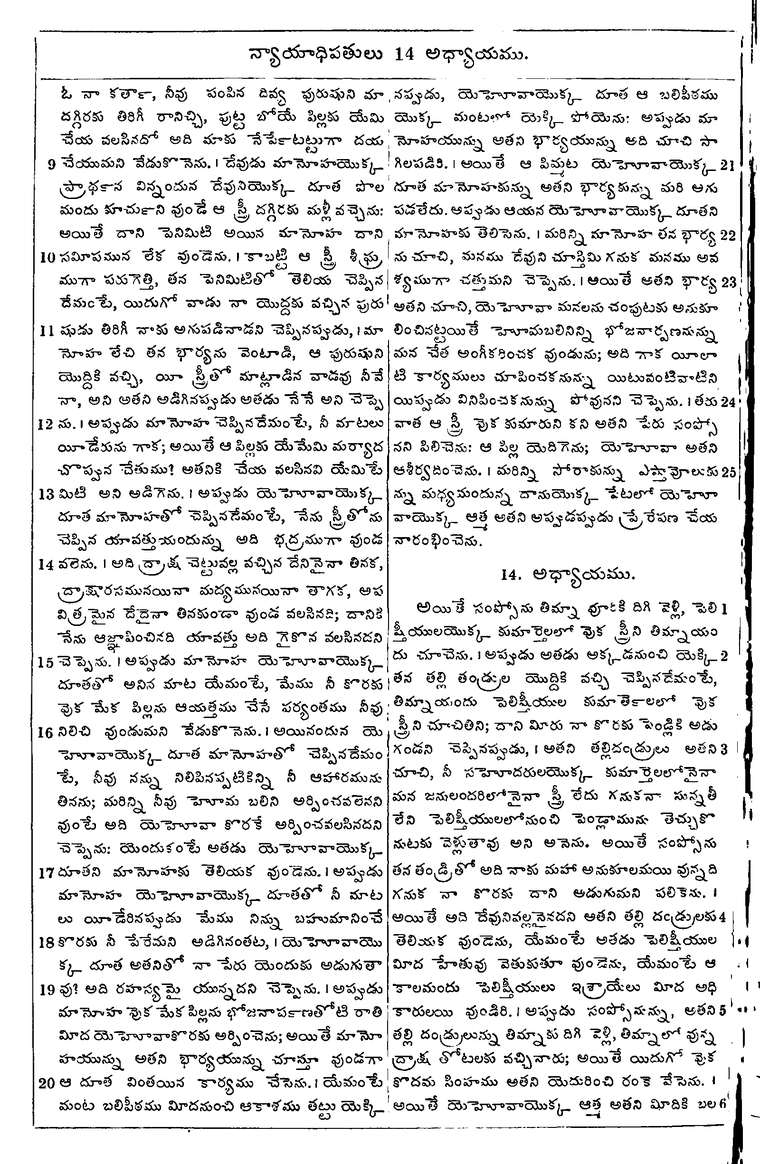 న్యాయాధిపతులు 14 అధ్యాయము.
ఓ నా కర్తా, నీవు పంపిన దివ్య పురుషుని మా
దగ్గిరకు తిరిగీ రానిచ్చి, పుట్ట బోయే పిల్లకు యేమి
చేయ వలసినదో అది మాకు నేర్పేటట్టుగా దయ
9 చేయుమని వేడుకొనెను. । దేవుడు మానోహయొక్క
ప్రార్థన విన్నందున దేవునియొక్క దూత పొల
మందు కూర్చుని వుండే ఆ స్త్రీ దగ్గిరకు మళ్లీ వచ్చెను:
అయితే దాని పెనిమిటి అయిన మానోహ దాని
10 సమీపమున లేక వుండెను. । కాబట్టి ఆ స్త్రీ శీఘ్ర
ముగా పరుగెత్తి, తన పెనిమిటితో తెలియ చెప్పిన
దేమంటే, యిదుగో వాడు నా యొద్దకు వచ్చిన పురు
11 షుడు తిరిగీ నాకు అగుపడినాడని చెప్పినప్పుడు, । మా
నోహ లేచి తన భార్యను వెంటాడి, ఆ పురుషుని
యొద్దికి వచ్చి, యీ స్త్రీతో మాట్లాడిన వాడవు నీవే
నా, అని అతని అడిగినప్పుడు అతడు నేనే అని చెప్పె
12 ను. । అప్పుడు మానోహ చెప్పినదేమంటే, నీ మాటలు
యీడేరును గాక; అయితే ఆ పిల్లకు యేమేమి మర్యాద
చొప్పున చేతుము? అతనికి చేయ వలసినవి యేమిటే
13 మిటి అని అడిగెను. । అప్పుడు యెహోవాయొక్క
దూత మానోహతో చెప్పినదేమంటే, నేను స్త్రీతోను
చెప్పిన యావత్తుయందున్ను అది భద్రముగా వుండ
14 వలెను. । అది ద్రాక్ష చెట్టువల్ల వచ్చిన దేనినైనా తినక,
ద్రాక్షారసమునయినా మద్యమునయినా తాగక, అప
విత్రమైన దేదైనా తినకుండా వుండ వలసినది; దానికి
నేను ఆజ్ఞాపించినది యావత్తు అది గైకొన వలసినదని
15 చెప్పెను. । అప్పుడు మానోహ యెహోవాయొక్క
దూతతో అనిన మాట యేమంటే, మేము నీ కొరకు
వొక మేక పిల్లను ఆయత్తము చేసే పర్యంతము నీవు
16 నిలిచి వుండుమని వేడుకొనెను. । అయినందున యె
హోవాయొక్క దూత మానోహతో చెప్పినదేమం
టే, నీవు నన్ను నిలిపినప్పటికిన్ని నీ ఆహారమును
తినను; మరిన్ని నీవు హోమ బలిని అర్పించవలెనని
వుంటే అది యెహోవా కొరకే అర్పించవలసినదని
చెప్పెను: యెందుకంటే అతడు యెహోవాయొక్క
17 దూతని మానోహకు తెలియక వుండెను. । అప్పుడు
మానోహ యెహోవాయొక్క దూతతో నీ మాట
లు యీడేరినప్పుడు మేము నిన్ను బహుమానించే
18 కొరకు నీ పేరేమని అడిగినంతట, । యెహోవాయొ
క్క దూత అతనితో నా పేరు యెందుకు అడుగుతా
19 వు? అది రహస్యమై యున్నదని చెప్పెను. । అప్పుడు
మానోహ వొక మేక పిల్లను భోజనార్పణతోటి రాతి
మీద యెహోవాకొరకు అర్పించెను; అయితే మానో
హయున్ను అతని భార్యయున్ను చూస్తూ వుండగా
20 ఆ దూత వింతయిన కార్యము చేసెను. । యేమంటే
మంట బలిపీఠము మీదనుంచి ఆకాశము తట్టు యెక్కి
నప్పుడు, యెహోవాయొక్క దూత ఆ బలిపీఠము
యొక్క మంటలో యెక్కి పోయెను: అప్పుడు మా
నోహయున్ను అతని భార్యయున్ను అది చూచి సా
గిలపడిరి. । అయితే ఆ పిమ్మట యెహోవాయొక్క 21
దూత మానోహకున్ను అతని భార్యకున్ను మరి అగు
పడలేదు. అప్పుడు ఆయన యెహోవాయొక్క దూతని
మానోహకు తెలిసెను. । మరిన్ని మానోహ తన భార్య 22
ను చూచి, మనము దేవుని చూస్తిమి గనుక మనము అవ
శ్యముగా చత్తుమని చెప్పెను. । అయితే అతని భార్య 23
అతని చూచి, యెహోవా మనలను చంపుటకు అనుకూ
లించినట్టయితే హోమబలినిన్ని భోజనార్పణనున్ను
మన చేత అంగీకరించక వుండును; అది గాక యీలా
టి కార్యములు చూపించకనున్ను యిటువంటివాటిని
యిప్పుడు వినిపించకనున్ను పోవునని చెప్పెను. । తరు 24
వాత ఆ స్త్రీ వొక కుమారుని కని అతని పేరు సంప్సో
నని పిలిచెను: ఆ పిల్ల యెదిగెను; యెహోవా అతని
ఆశీర్వదించెను. । మరిన్ని సోరాకున్ను ఎస్తావోలుకు 25
న్ను మధ్యమందున్న దానుయొక్క పేటలో యెహో
వాయొక్క ఆత్మ అతని అప్పుడప్పుడు ప్రేరేపణ చేయ
నారంభించెను.
14. అధ్యాయము.
అయితే సంప్సోను తిమ్నా వూరికి దిగి వెళ్లి, పెలి 1
ష్తీయులయొక్క కుమార్తెలలో వొక స్త్రీని తిమ్నాయం
దు చూచెను. । అప్పుడు అతడు అక్కడనుంచి యెక్కి 2
తన తల్లి తండ్రుల యొద్దికి వచ్చి చెప్పినదేమంటే,
తిమ్నాయందు పెలిష్తీయుల కుమార్తెలలో వొక
స్త్రీని చూచితిని; దాని మీరు నా కొరకు పెండ్లికి అడు
గండని చెప్పినప్పుడు, । అతని తల్లిదండ్రులు అతని 3
చూచి, నీ సహోదరులయొక్క కుమార్తెలలోనైనా
మన జనులందరిలోనైనా స్త్రీ లేదు గనుకనా సున్నతీ
లేని పెలిష్తీయులలోనుంచి పెండ్లామును తెచ్చుకొ
నుటకు వెళ్లుతావు అని అనెను. అయితే సంప్సోను
తన తండ్రితో అది నాకు మహా అనుకూలమయి వున్నది
గనుక నా కొరకు దాని అడుగుమని పలికెను. ।
అయితే అది దేవునివల్లనైనదని అతని తల్లి దండ్రులకు 4
తెలియక వుండెను, యేమంటే అతడు పెలిష్తీయుల
మీద హేతువు వెతుకుతూ వుండెను, యేమంటే ఆ
కాలమందు పెలిష్తీయులు ఇశ్రాయేలు మీద అధి
కారులయి వుండిరి. । అప్పుడు సంప్సోనున్ను, అతని 5
తల్లి దండ్రులున్ను తిమ్నాకు దిగి వెళ్లి, తిమ్నాలో వున్న
ద్రాక్ష తోటలకు వచ్చినారు; అయితే యిదుగో వొక
కొదమ సింహము అతని యెదురించి రంకె వేసెను. ।
అయితే యెహోవాయొక్క ఆత్మ అతని మీదికి బల 6